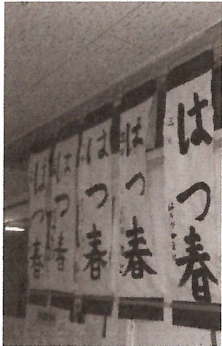 はつ春
はつ春
はつ春
はつ春
はつ春